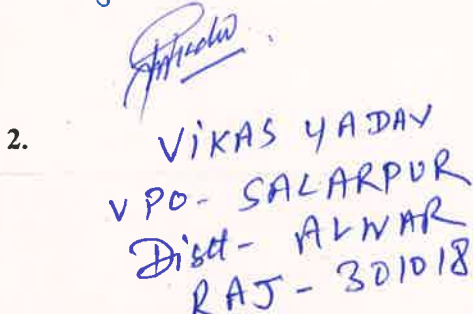 2. VIKAS YADAV
VPO- SALARPUR
Distt- ALWAR
RAJ - 301018